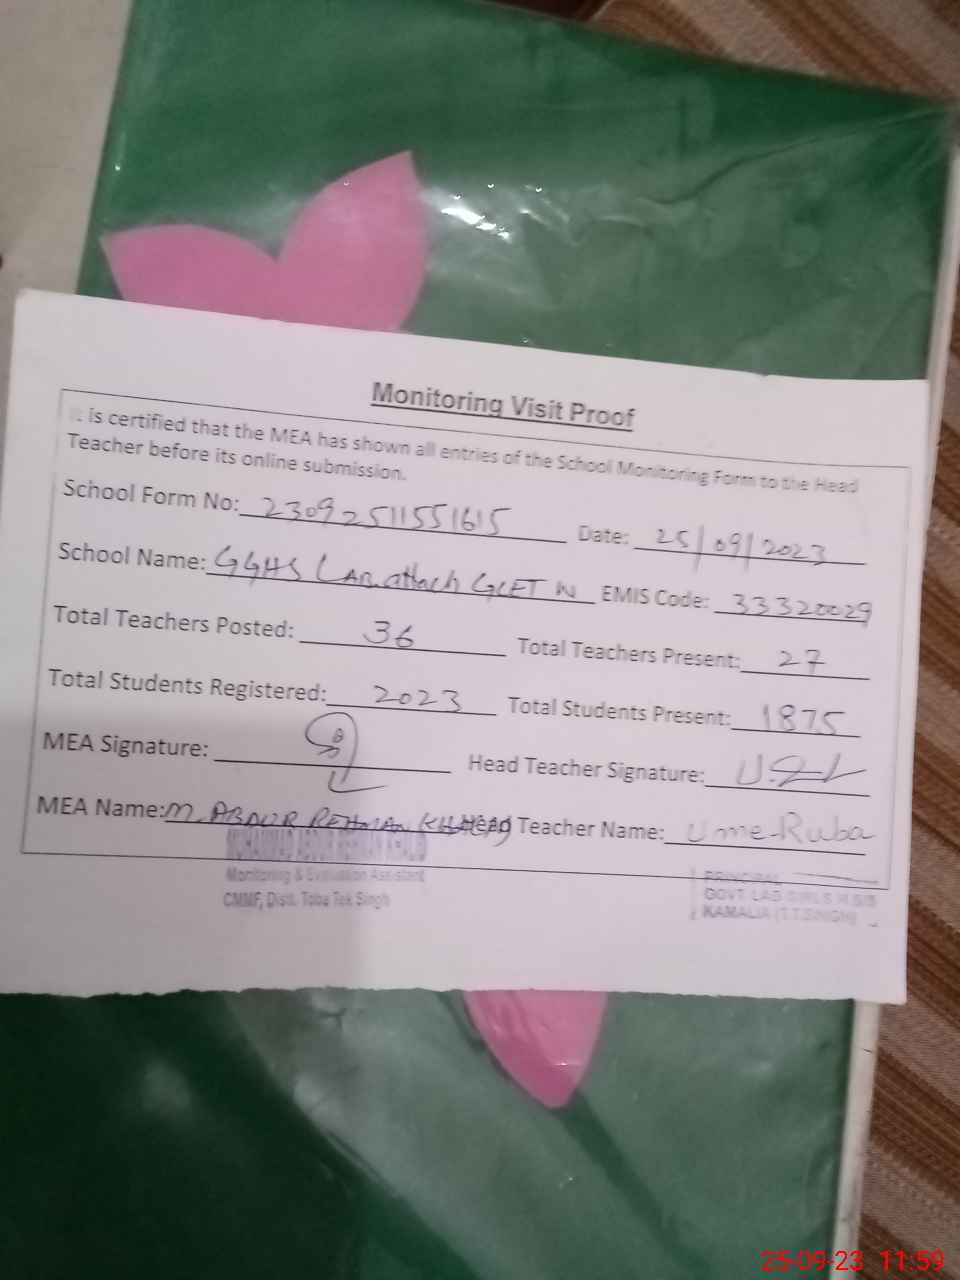 Monitoring Visit Proof
It is certified that the MEA has shown all entries of the School Monitoring Form to the Head
Teacher before its online submission.
School Form No: 23092511551615 Date: 25/09/2023
School Name: GGHS LAB. attach GCET W EMIS Code: 33320029
Total Teachers Posted: 36 Total Teachers Present: 27
Total Students Registered: 2023 Total Students Present: 1875
MEA Signature: Head Teacher Signature:
MEA Name: M. ABDUR REHMAN KHALID Teacher Name: Ume-Ruba
MUHAMMAD ABDUR REHMAN KHALID
Monitoring & Evaluation Assistant
CMMF, Distt. Toba Tek Singh
PRINCIPAL
GOVT. LAB GIRLS H.S/S
KAMALIA (T.T.SINGH)
25-09-23 11:59